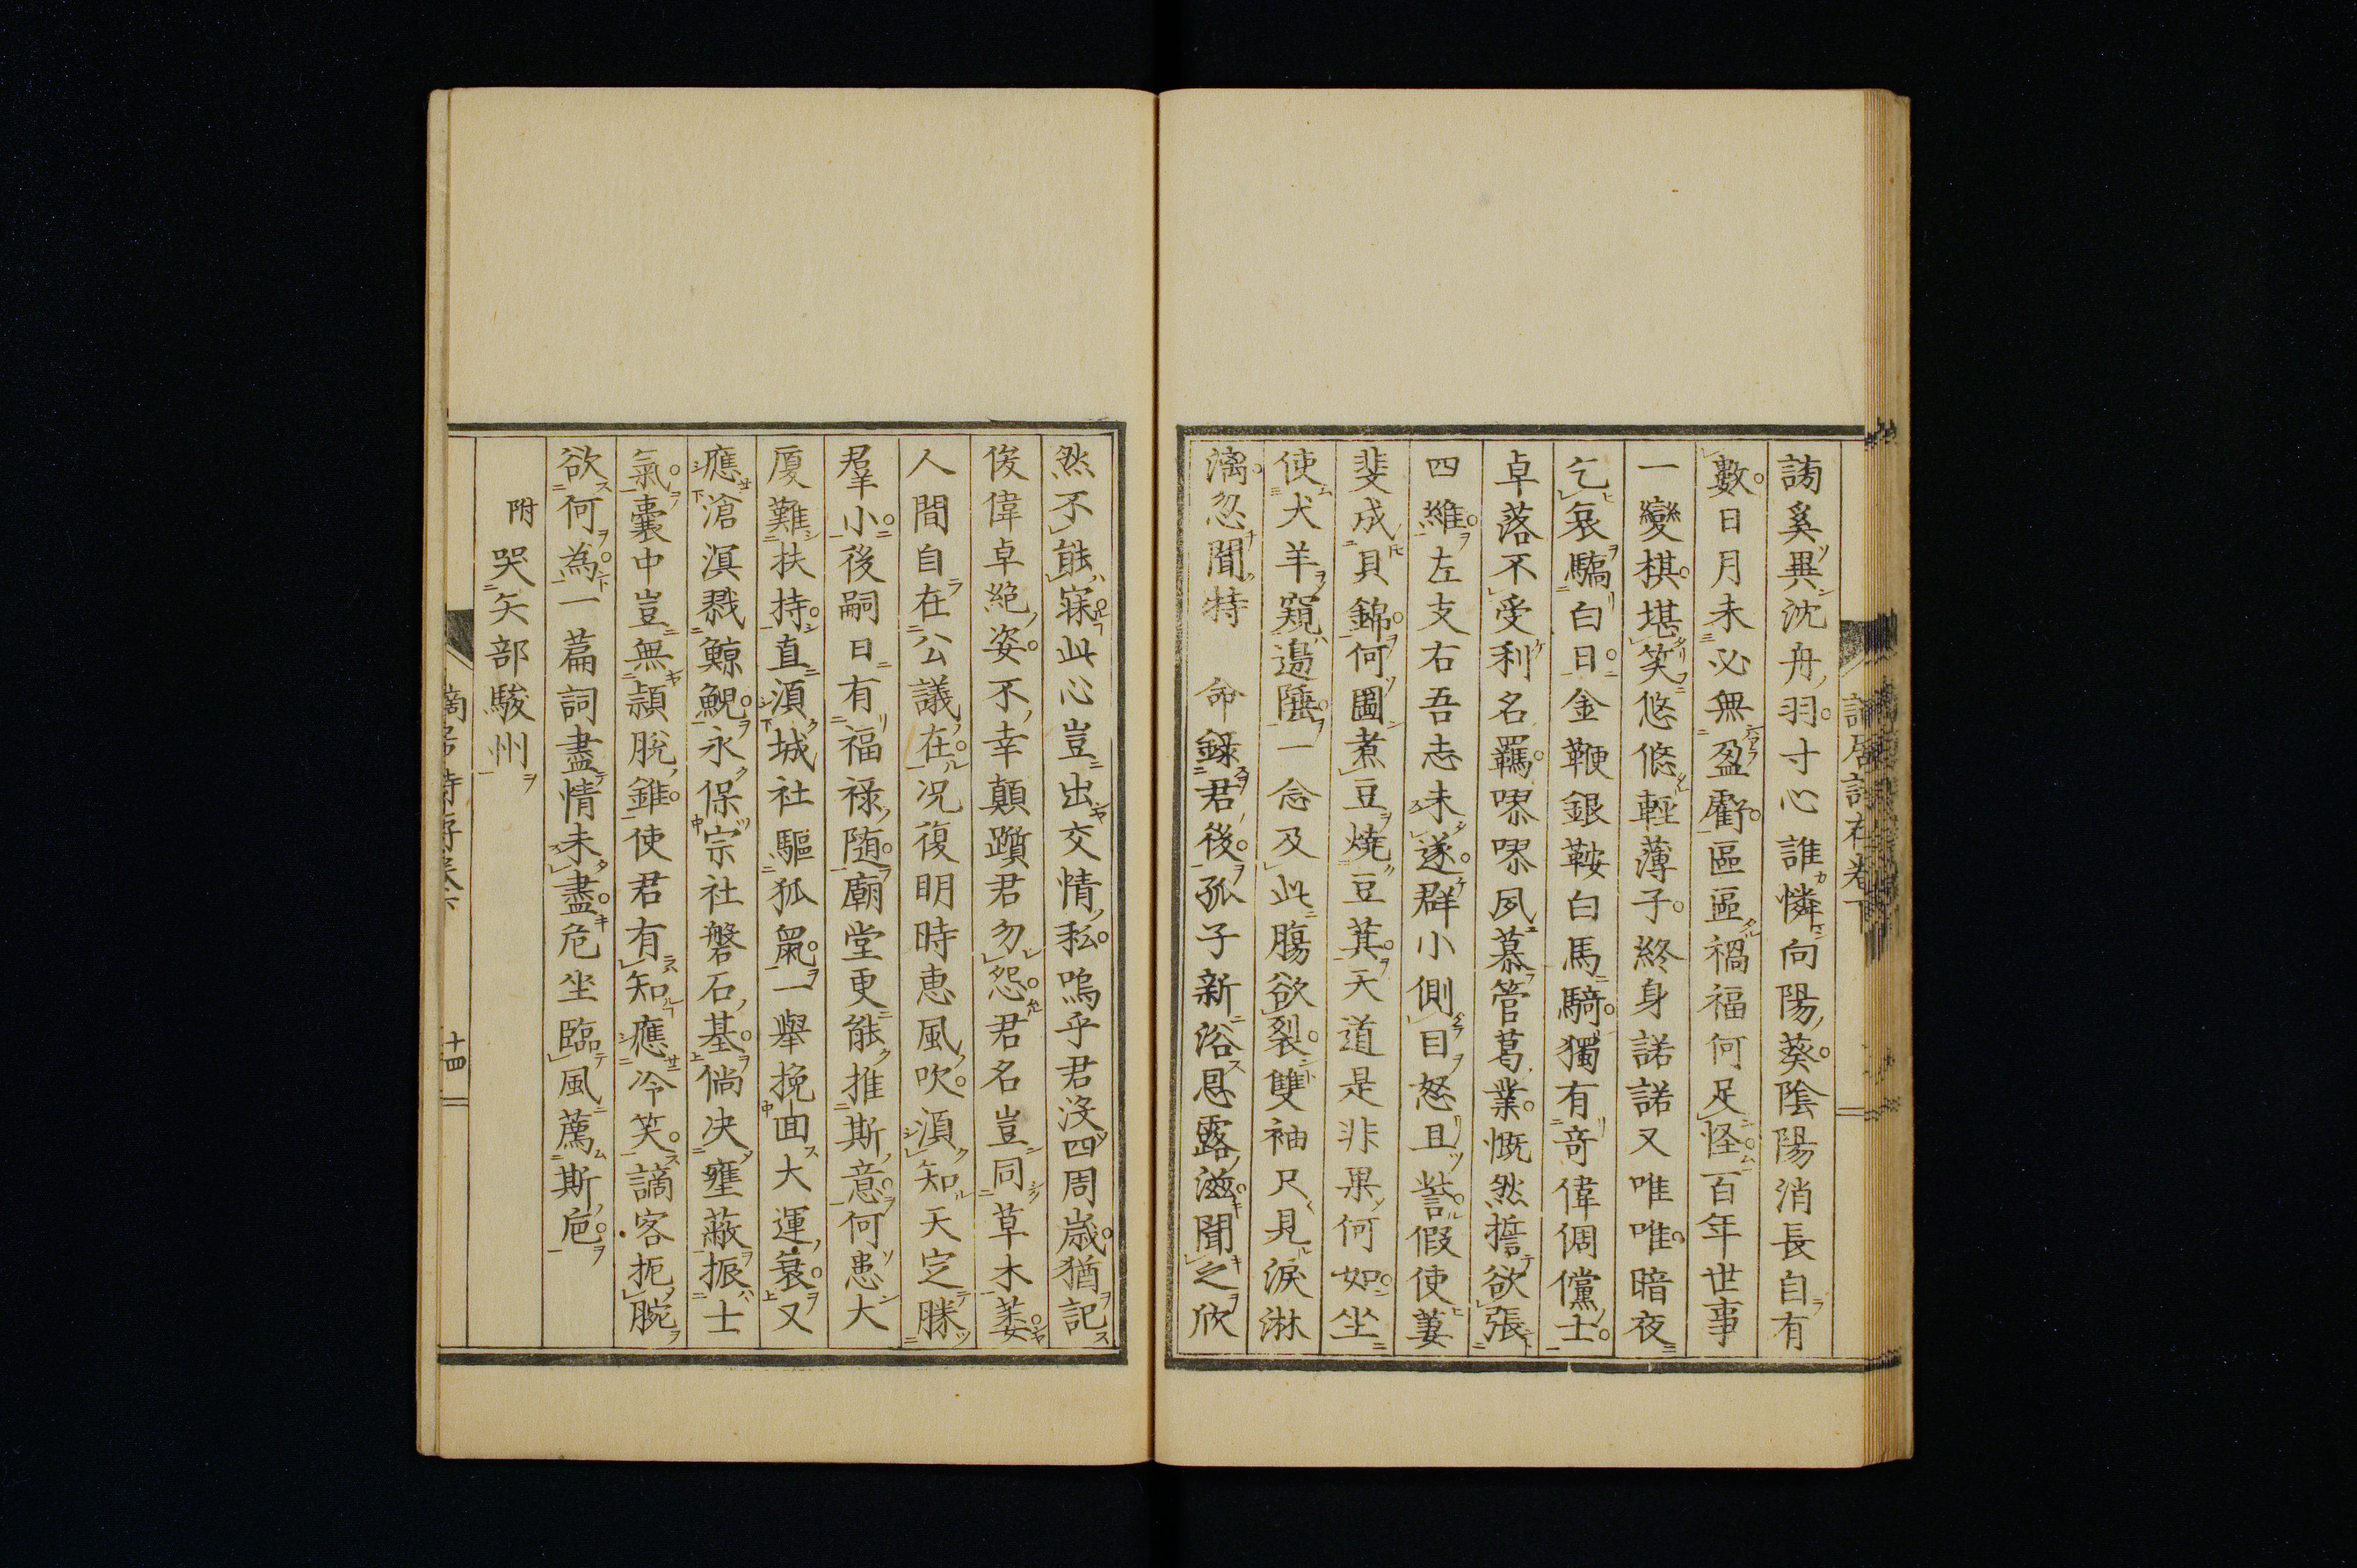 謗奚異沈舟羽寸心誰憐向陽葵陰陽消長自有
數日月未必無盈虧區區禍福何足怪百年世事
一變棋堪笑悠悠輕薄子終身諾諾又唯唯暗夜
乞哀驕白日金鞭銀鞍白馬騎獨有奇偉倜儻士
卓落不受利名羈嘐嘐夙慕管葛業慨然擔欲張
四維左支右吾志未遂群小側目怒且訾假使萋
斐成貝錦何圖煮豆燒豆萁天道是非果何如坐
使犬羊窺邊陲一念及此膓欲裂雙袖只見淚淋
漓忽聞特命録君後孤子新浴恩露滋聞之欣
然不能寐此心豈出交情私嗚乎君沒四周歳猶記
俊偉卓絶姿不幸顛躓君勿怨君名豈同草木萎
人間自在公議在况復明時恵風吹湏知天定勝
羣小後嗣日有福禄随廟堂更能推斯意何患大
厦難扶持直湏城社驅狐鼠一擧挽囬大運衰又
應滄溟戮鯨鯢永保宗社磐石基倘决壅蔽振士
氣囊中豈無頴脱錐使君有知應冷笑謫客扼腕
欲何為一篇詞盡情未盡危坐臨風薦斯巵
附
哭矢部駿州
十四